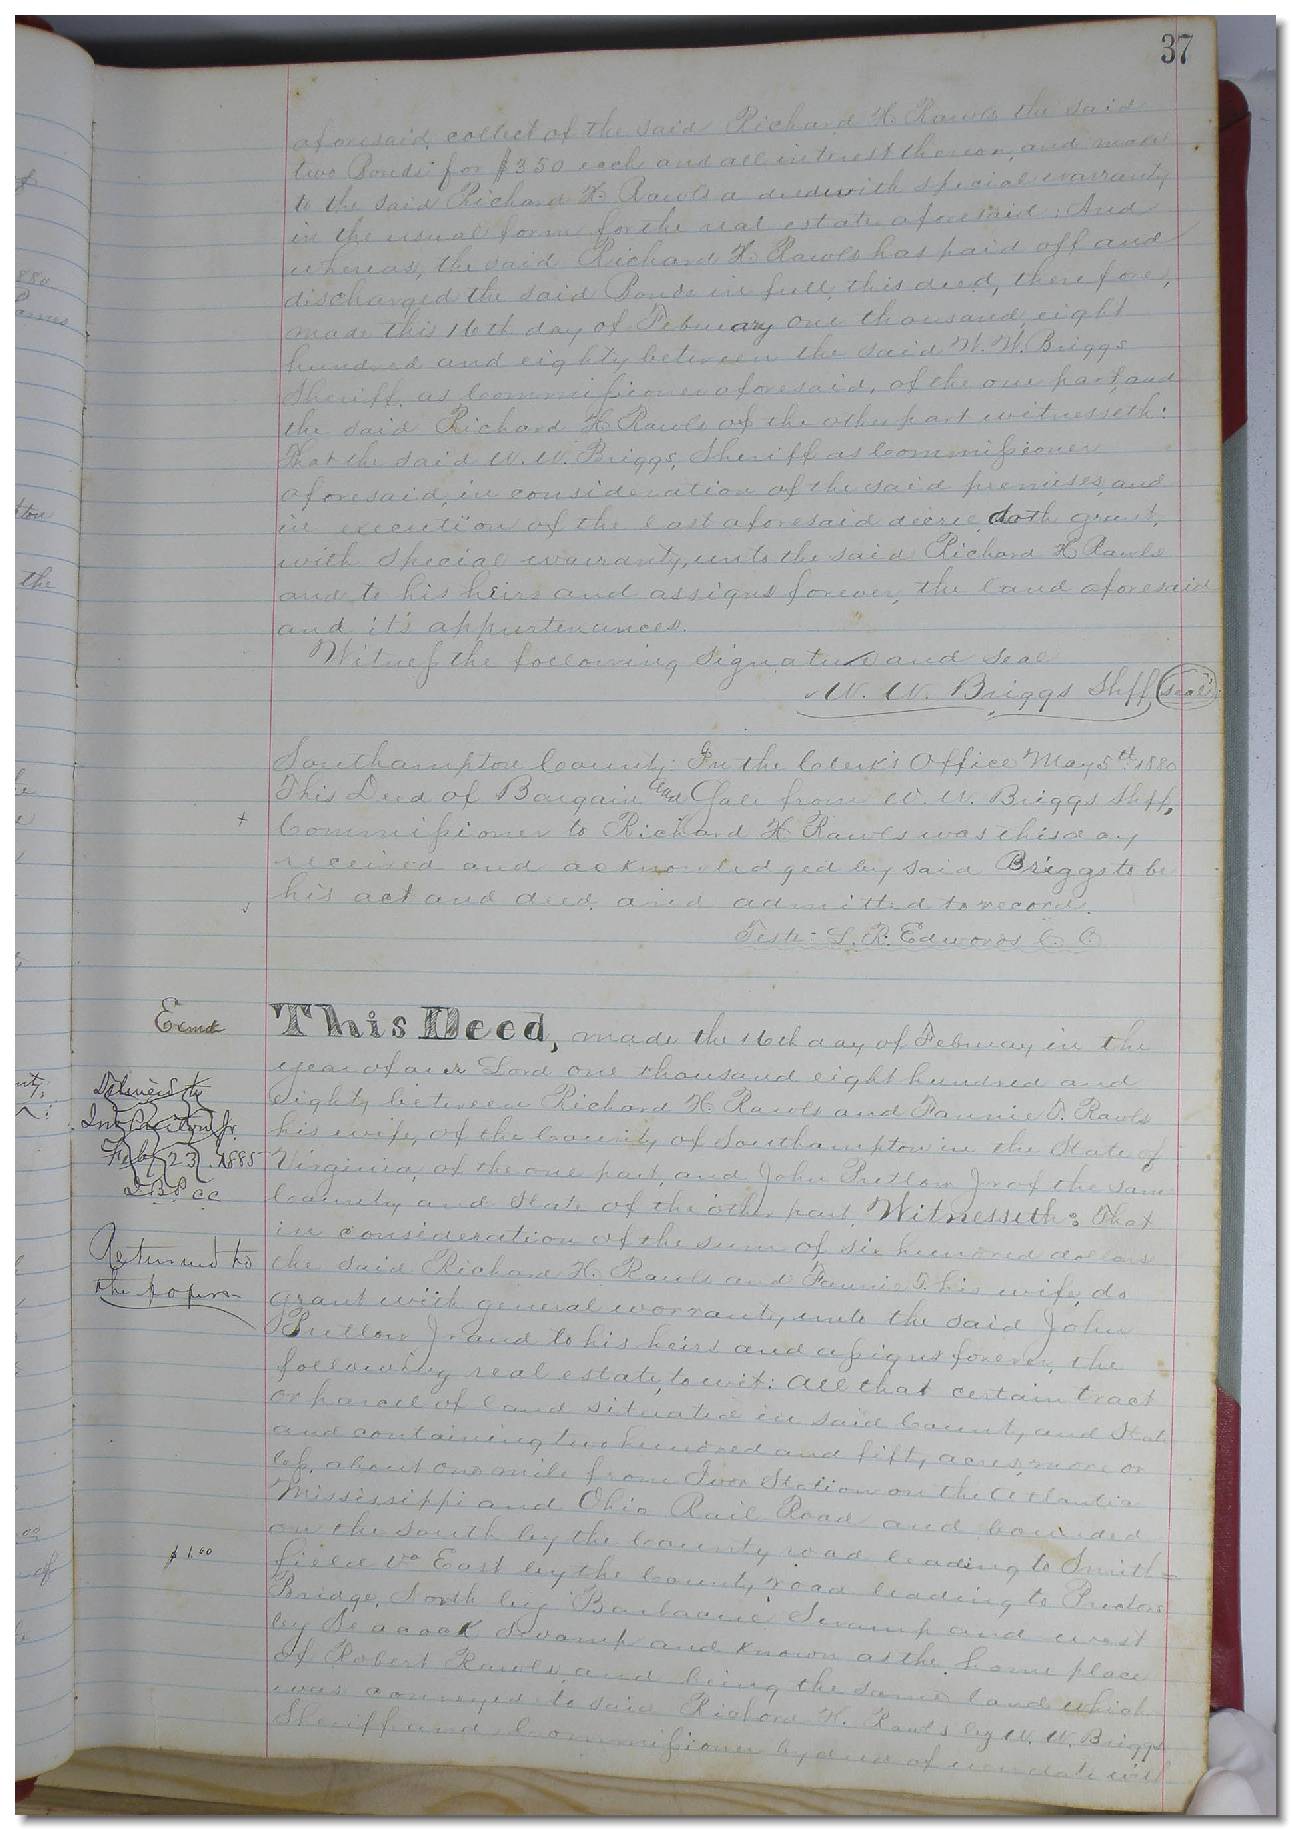 37
aforesaid, collect of the said Richard H. Rawls the said
two Bonds for $350 each and all interest thereon, and make
to the said Richard H. Rawls a deed with special warranty
in the usual form for the real estate aforesaid: And
whereas, the said Richard H. Rawls has paid off and
discharged the said Bonds in full, this deed, therefore,
made this 16th day of February one thousand eight
hundred and eighty between the said W. W. Briggs
Sheriff, as Commissioner aforesaid, of the one part, and
the said Richard H. Rawls of the other part witnesseth:
That the said W. W. Briggs, Sheriff as Commissioner
aforesaid, in consideration of the said premises, and
in execution of the last aforesaid decree, doth grant,
with special warranty, unto the said Richard H. Rawls
and to his heirs and assigns forever, the land aforesaid
and it's appurtenances.
Witness the following signature and seal
W. W. Briggs Shff, seal
Southampton County: In the Clerk's Office May 5th 1880
This Deed of Bargain and Sale from W. W. Briggs Shff,
Commissioner to Richard H. Rawls was this day
received and acknowledged by said Briggs to be
his act and deed, and admitted to record.
Teste: L. R. Edwards C. C.
Exmd
This Deed, made the 16th day of Februay in the
year of our Lord one thousand eight hundred and
Eighty between Richard H. Rawls and Fannie T. Rawls
his wife, of the County of Southampton in the State of
Virginia, of the one part, and John Pretlow Jr of the same
County and State of the other part, Witnesseth: That
in consideration of the sum of six hundred dollars
the said Richard H. Rawls and Fannie T. his wife, do
grant with general warranty, unto the said John
Pretlow Jr and to his heirs and assigns forever, the
following real estate, to wit: All that certain tract
or parcel of land situated in said County and State
and containing two hundred and fifty acres, more or
less, about one mile from Ivor Station on the Atlantic
Mississippi and Ohio Rail Road and bounded
on the South by the County road leading to Smith=
field Va East by the County road leading to Proctors
Bridge, North by Barbacue Swamp and west
by Seacock Swamp and known as the home place
of Robert Rawls, and being the same land which
was conveyed to said Richard H. Rawls by W. W. Briggs
Sheriff and Commissioner by deed of even date with
Delivered to
Jno Pretlow Jr.
Feby 23, 1885
Returned to
the
$1.00